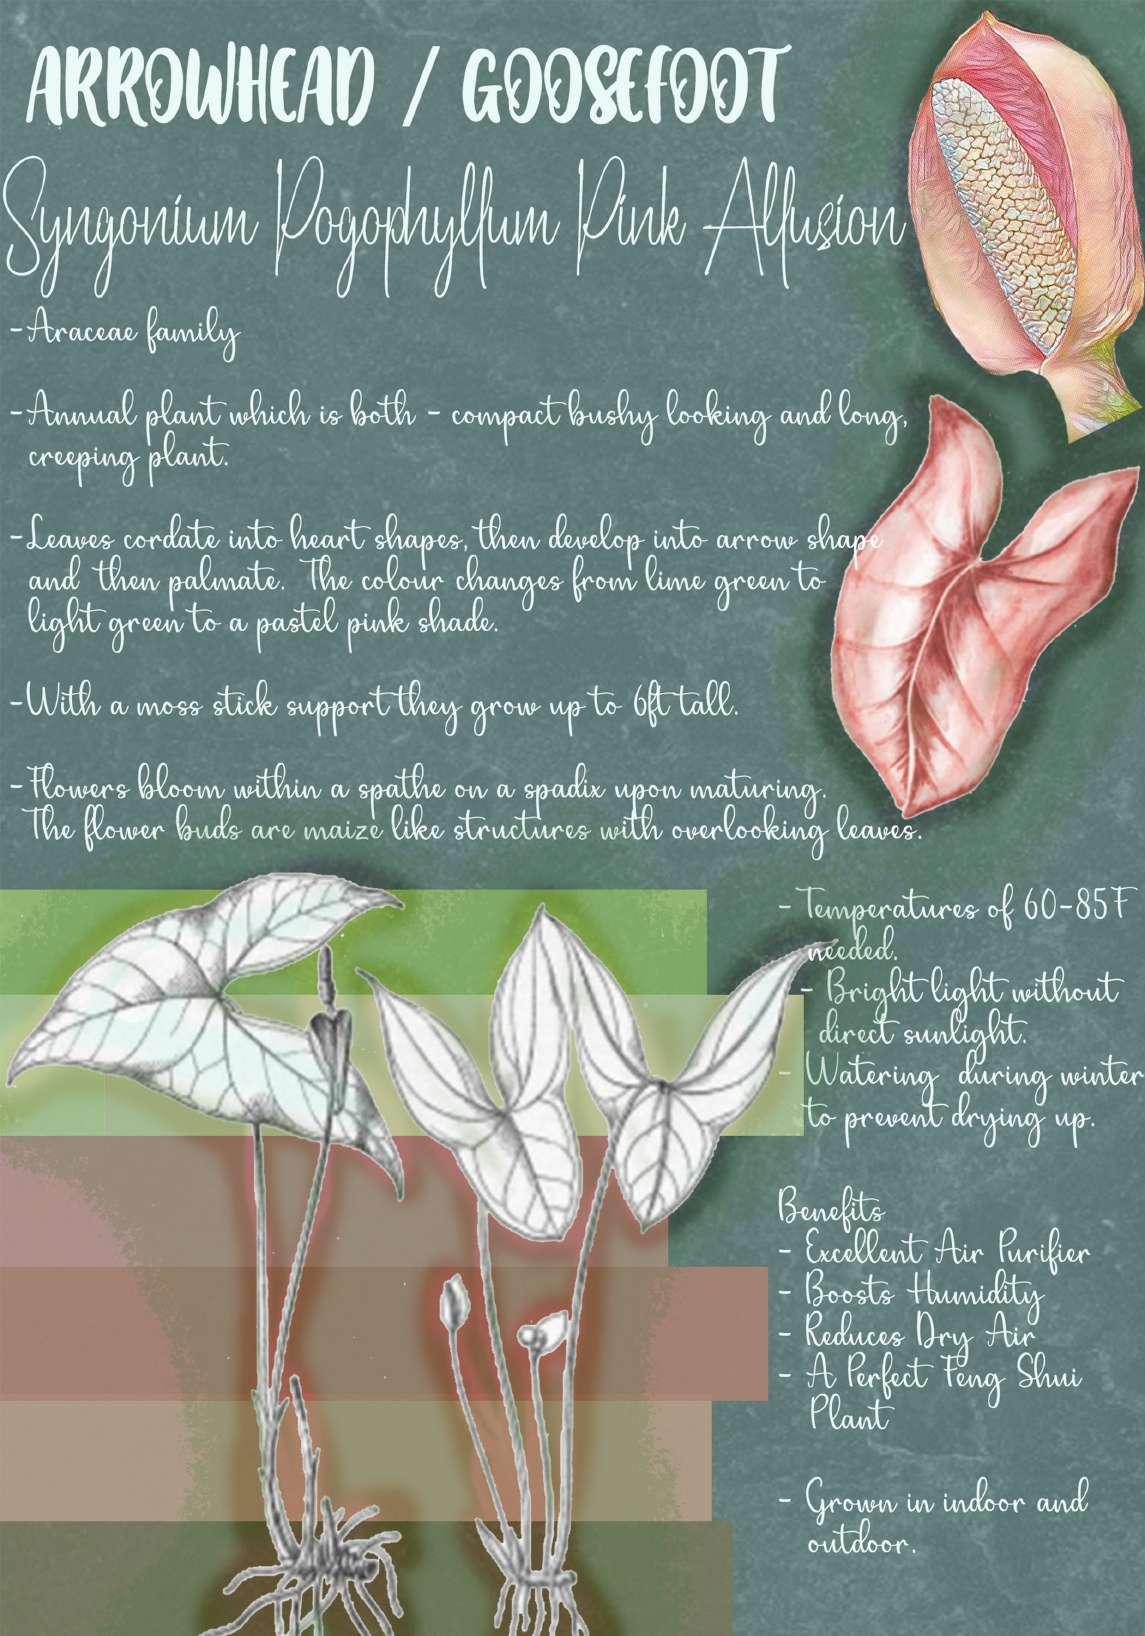 ARROWHEAD / GOOSEFOOT
Syngonium Pogophyllum Pink Allusion
-Araceae family
-Annual plant which is both - compact bushy looking and long,
creeping plant.
-Leaves cordate into heart shapes, then develop into arrow shape
and then palmate. The colour changes from lime green to
light green to a pastel pink shade.
-With a moss stick support they grow up to 6ft tall.
-Flowers bloom within a spathe on a spadix upon maturing.
The flower buds are maize like structures with overlooking leaves.
- Temperatures of 60-85F
needed.
- Bright light without
direct sunlight.
- Watering during winter
to prevent drying up.
Benefits
- Excellent Air Purifier
- Boosts Humidity
- Reduces Dry Air
- A Perfect Feng Shui
Plant
- Grown in indoor and
outdoor.